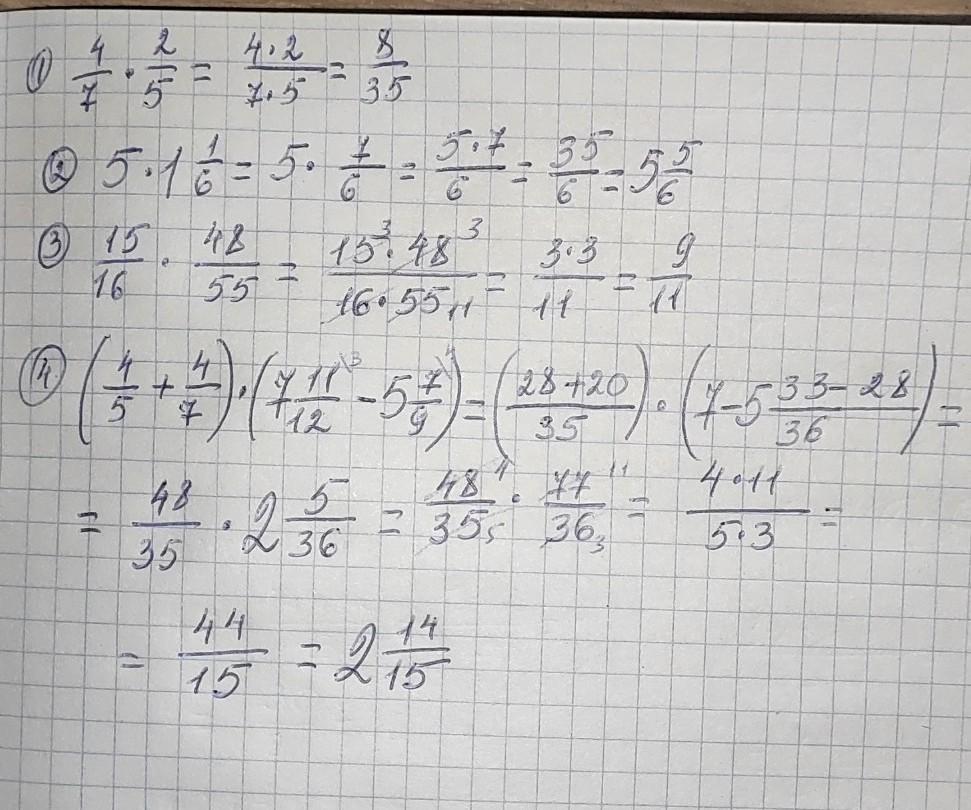 ① 4/7 · 2/5 = 4·2/7·5 = 8/35
② 5·1 1/6 = 5· 7/6 = 5·7/6 = 35/6 = 5 5/6
③ 15/16 · 48/55 = 15³·48³/16·55₁₁ = 3·3/11 = 9/11
④ (4/5 + 4/7)·(7 11/12³ − 5 7/9⁴) = (28+20/35)·(7−5 33−28/36) =
= 48/35 · 2 5/36 = 48⁴/35₅ · 77¹¹/36₃ = 4·11/5·3 =
= 44/15 = 2 14/15